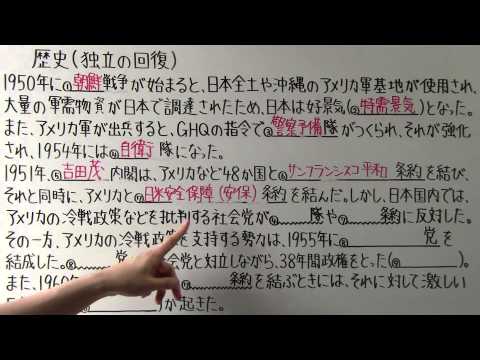 歴史(独立の回復)
1950年に①朝鮮戦争が始まると、日本全土や沖縄のアメリカ軍基地が使用され、
大量の軍需物資が日本で調達されたため、日本は好景気(②特需景気)となった。
また、アメリカ軍が出兵すると、GHQの指令で③警察予備隊がつくられ、それが強化
され、1954年には④自衛隊になった。
1951年、⑤吉田茂内閣は、アメリカなど48か国と⑥サンフランシスコ平和条約を結び、
それと同時に、アメリカと⑦日米安全保障(安保)条約を結んだ。しかし、日本国内では、
アメリカの冷戦政策などを批判する社会党が 隊や 条約に反対した。
その一方、アメリカの冷戦政策を支持する勢力は、1955年に 党を
結成した。 党 会党と対立しながら、38年間政権をとった( )。
また、1960年 条約を結ぶときには、それに対して激しい
)が起きた。